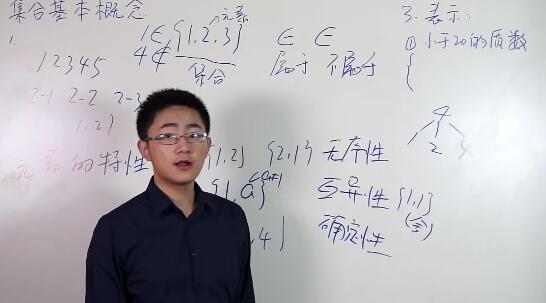 集合基本概念
1.
1∈{1,2,3}
元素
4∉
集合
∈ ∈
属于 不属于
1 2 3 4 5
2-1 2-2 2-3
1.2)
元素的特性
1,2} {2,1} 无序性
1,a} a≠1 互异性 {1,1}
(舍)
,4} 确定性
3. 表示:
① 小于20的质数
{
4
2 4